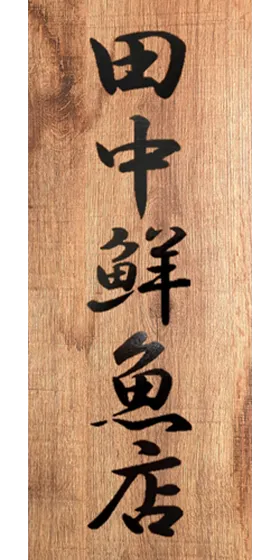 田中鮮魚店